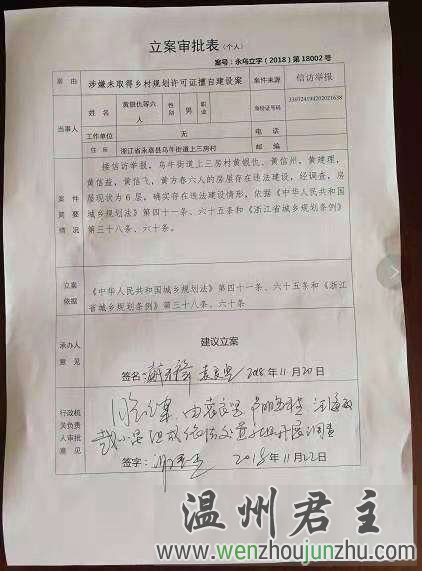 立案审批表（个人）
案号：永乌立字（2018）第18002号
案由 涉嫌未取得乡村规划许可证擅自建设案 案件来源 信访举报
当事人 姓名 黄银也等六人 性别 男 职业 身份证号码
工作单位 无 电话
住址 浙江省永嘉县乌牛街道上三房村 邮编
案件简要情况
接信访举报，乌牛街道上三房村黄银也、黄信州、黄建理，
黄信益，黄信飞，黄方春六人的房屋存在违法建设，经调查，房
屋现状为6层，确实存在违法建设情形，依据《中华人民共和国
城乡规划法》第四十一条、六十五条和《浙江省城乡规划条例》
第三十八条、六十条。
立案依据
《中华人民共和国城乡规划法》第四十一条、六十五条和《浙江
省城乡规划条例》第三十八条、六十条
承办人意见
建议立案
签名： 2018年11月20日
行政机关负责人审批意见
签字： 2018年11月22日
温州君主
www.wenzhoujunzhu.com